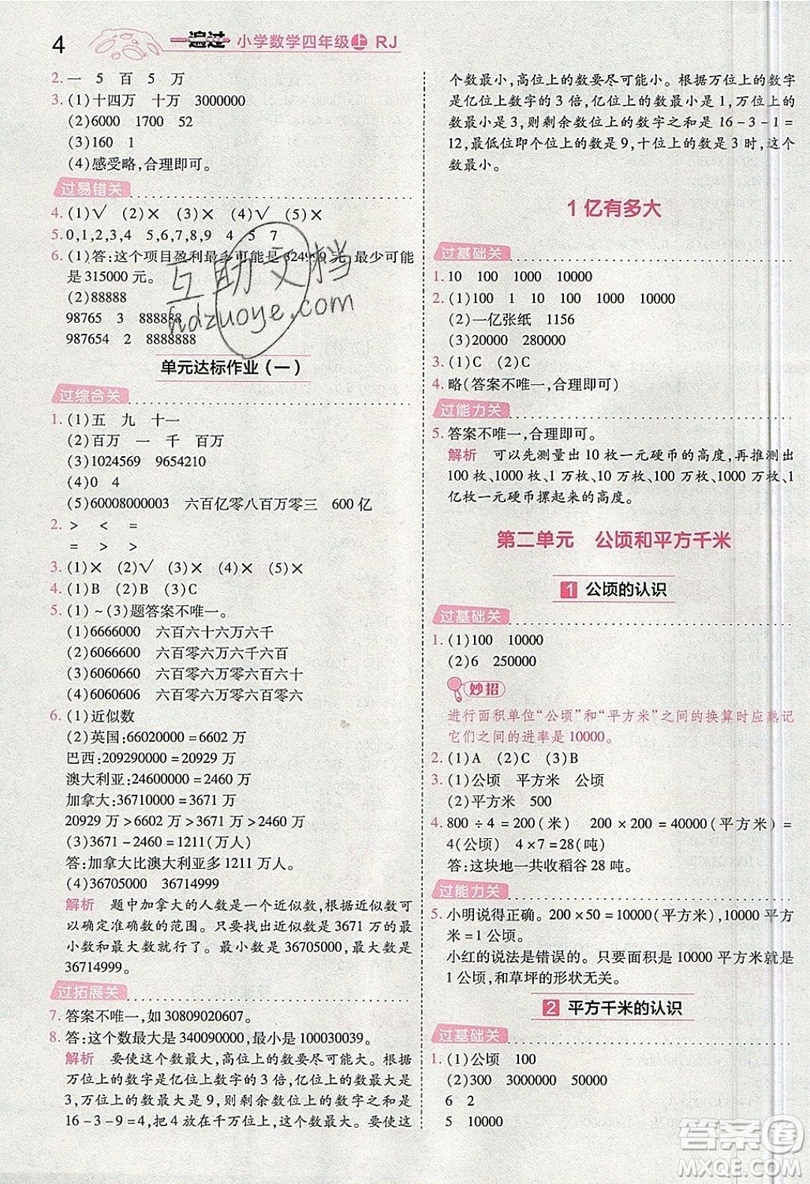 4
一遍过 小学数学四年级上 RJ
2. 一 五 百 五 万
3. (1)十四万 十万 3000000
(2)6000 1700 52
(3)160 1
(4)感受略,合理即可。
过易错关
4. (1)√ (2)× (3)× (4)×
5. 0,1,2,3,4 5,6,7,8,9 4 5 7
6. (1)答:这个项目盈利最多可能是32499 元,最少可能
是 315000 元。
(2)88888
98765 3 888888
987654 9 8888888
单元达标作业(一)
过综合关
1. (1)五 九 十一
(2)百万 一 千 百万
(3)1024569 9654210
(4)0 4
(5)60008000003 六百亿零八百万零三 600 亿
2. > < =
= > <
3. (1)√ (2)× (3)√ (4)×
4. (1)B (2)C (3)A (4)B
5. (1)~(3)题答案不唯一。
(1)6666000 六百六十六万六千
(2)6006600 六百零六万六千六百
(3)6060606 六百零六万零六百零六
(4)6060600 六百零六万零六百
6. (1)近似数
(2)英国:66020000=6602 万
巴西:209290000=20929 万
澳大利亚:24600000=2460 万
加拿大:36710000≈3671 万
20929 万>6602 万>3671 万>2460 万
(3)3671-2460=1211(万)
答:加拿大比澳大利亚多 1211 万。
(4)36705000 36714999
解析 题中加拿大的人数是一个近似数,根据近似数可
以确定准确数的范围。只需要考虑 3671 万的最
小数和最大数就行了。最小数是 36705000,最大数
是 36714999。
过拓展关
7. 答案不唯一,如 30809020607。
8. 答:这个数最大是 340090000,最小是 100030039。
解析 要使这个数最大,高位上的数要尽可能大。根据
万位上的数字是亿位上数字的 3 倍,亿位上数字最大
是 3,则万位上数字最大是 9,剩余数位上的数字之和是
16-3-9=4,把 4 放在千万位上数最大。要使这
个数最小,高位上的数要尽可能小。根据万位上的数字
是亿位上数字的 3 倍,亿位上的数最小是 1,万位上的数
最小是 3,则剩余数位上的数字之和是 16-3-1=
12,最低位即个位上的数是 9,十位上的数是 3 时,这个
数最小。
1 亿有多大
过基础关
1. 10 100 1000 10000
2. (1)100 1000 10000 100000
(2)一亿张纸 1156
(3)20000 280000
3. (1)C (2)C
4. 略(答案不唯一,合理即可)
过能力关
5. 答案不唯一,合理即可。
解析 可以先测量出 10 枚一元硬币的高度,再推测出
100 枚、1000 枚、1 万枚、10 万枚、100 万枚、1000 万枚、1
亿枚一元硬币摞起来的高度。
第二单元 公顷和平方千米
1 公顷的认识
过基础关
1. (1)100 10000
(2)6 250000
妙招
进行面积单位“公顷”和“平方米”之间的换算时应熟记
它们之间的进率是 10000。
2. (1)A (2)C (3)B
3. (1)公顷 平方米 公顷
(2)平方米 500
4. 800÷4=200(米) 200×200=40000(平方米)=
4(公顷) 4×7=28(吨)
答:这块地一共收稻谷 28 吨。
过能力关
5. 小明说得正确。200×50=10000(平方米),10000 平方
米=1 公顷。
小红的说法是错误的。只要面积是 10000 平方米,就
是 1 公顷,和草坪的形状无关。
2 平方千米的认识
过基础关
1. (1)公顷 100
(2)300 3000000 50000
6 2
5 10000
互助文档
hdzuoye.com
答案圈
MXQE.COM